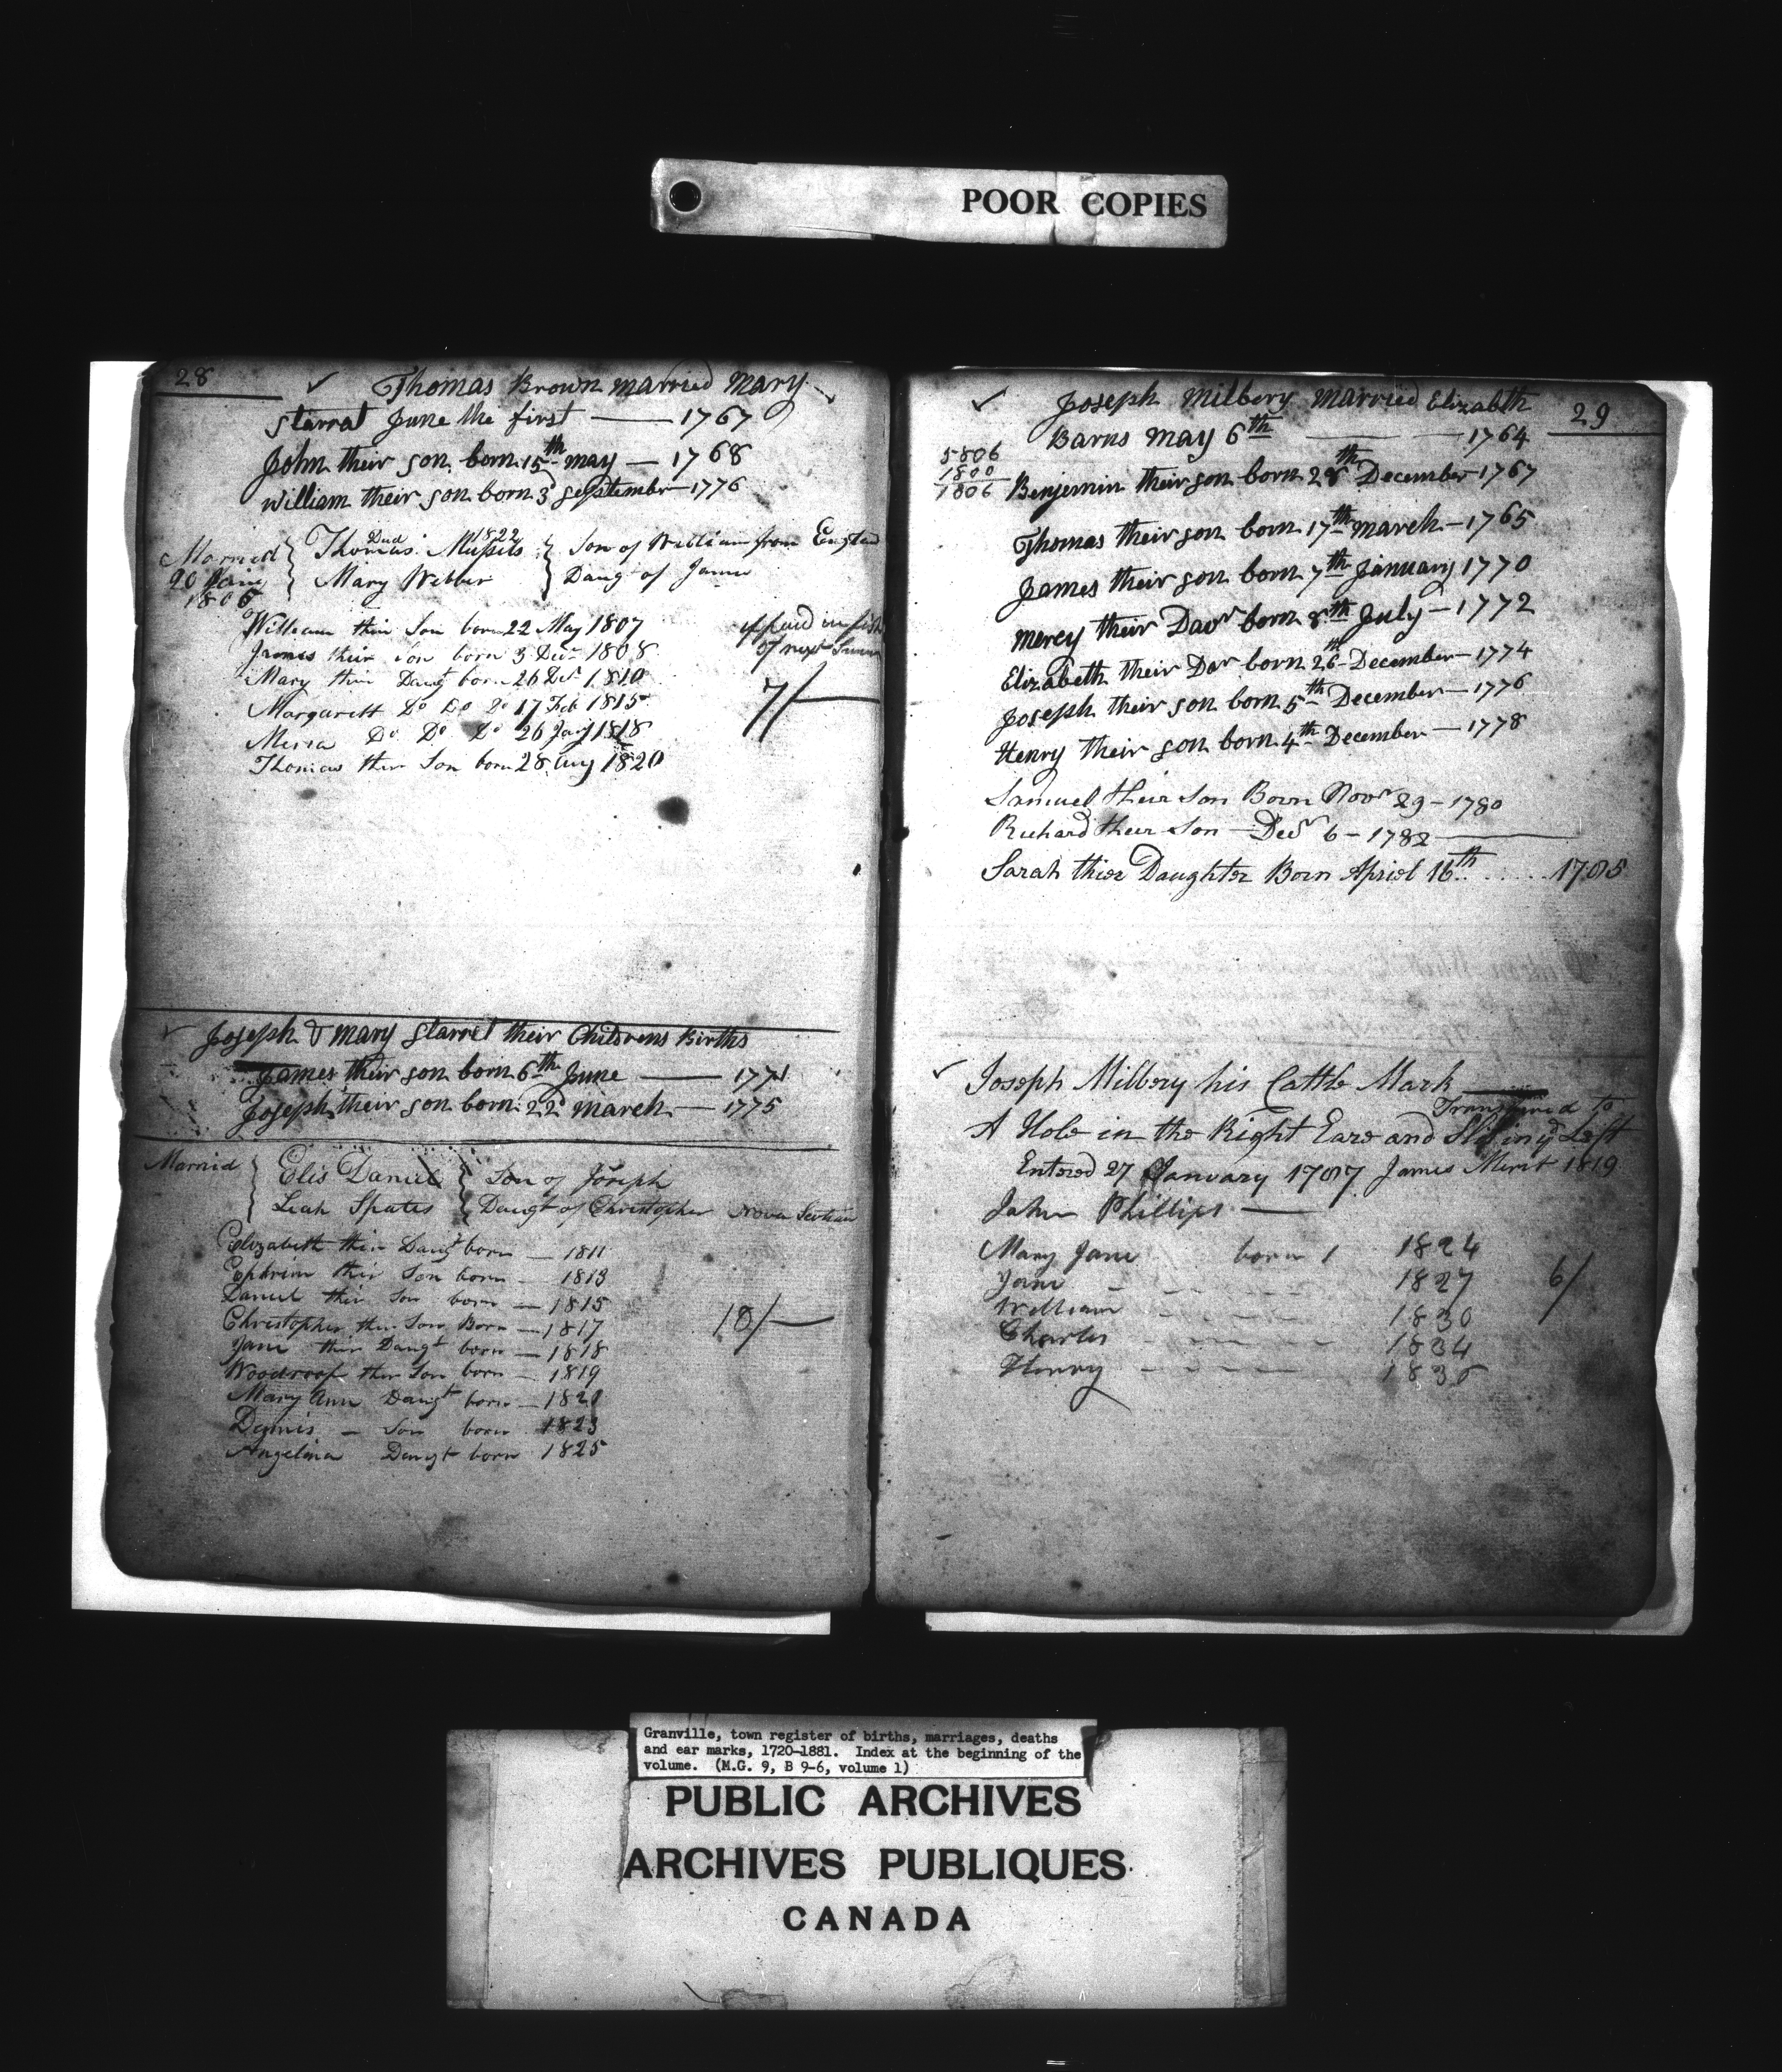 POOR COPIES
28
Thomas Brown married Mary
Starrat June the first — 1767
John their son born 15th may — 1768
William their son born 3d September — 1776
Married 20 Jany 1806
Dud 1822
Thomas Mussels } Son of William from England
Mary Webber } Daugt of James
William thir Son born 22 May 1807
James their Son born 3 Decr 1808
Mary thir Daugt born 26 Decr 1810
Margarett Do Do Do 17 Feb 1815
Do Do Do 26 Jany 1818
Thomas ther Son born 28 Aug 1820
if paid in fish
of next
7/—
Joseph & Mary Starret their Childrens Births
James their son born 6th June — 1771
Joseph their son born 22d march — 1775
Married { Elis Daniel } Son of Joseph
Leah Spates } Daugt of Christopher Nova Scotian
Elizabeth thir Daugt born — 1811
Ephrim thir Son born — 1813
Daniel thir Son born — 1815
Christopher ther Son Born — 1817
Jane ther Daugt born — 1818
Woodroof ther Son born — 1819
Mary Ann Daugt born — 1820
Son born 1823
Angelina Daugt born 1825
10/—
29
Joseph Milbery married Elizabth
Barns may 6th — 1764
5806
1800
1806
Benjemin their son born 28th December 1767
Thomas their son born 17th march — 1765
James their son born 7th January 1770
mercy their Daor born 8th July — 1772
Elizabeth their Dar born 26th December — 1774
Joseph their son born 5th December — 1776
Henry their son born 4th December — 1778
Samuel their Son Born Novr 29 — 1780
Richard their Son — Decr 6 — 1782
Sarah thier Daughter Born Apriel 16th ..... 1785
Joseph Milbery his Cattle Mark
Transfered to
A Hole in the Right Eare and Left
Entered 27 January 1787 James Merit 1819
John Phillips —
Mary Jane born 1 1824
Jane - 1827
William 1830
Charles 1834
Henry 1836
6/
Granville, town register of births, marriages, deaths
and ear marks, 1720-1881. Index at the beginning of the
volume. (M.G. 9, B 9-6, volume 1)
PUBLIC ARCHIVES
ARCHIVES PUBLIQUES
CANADA